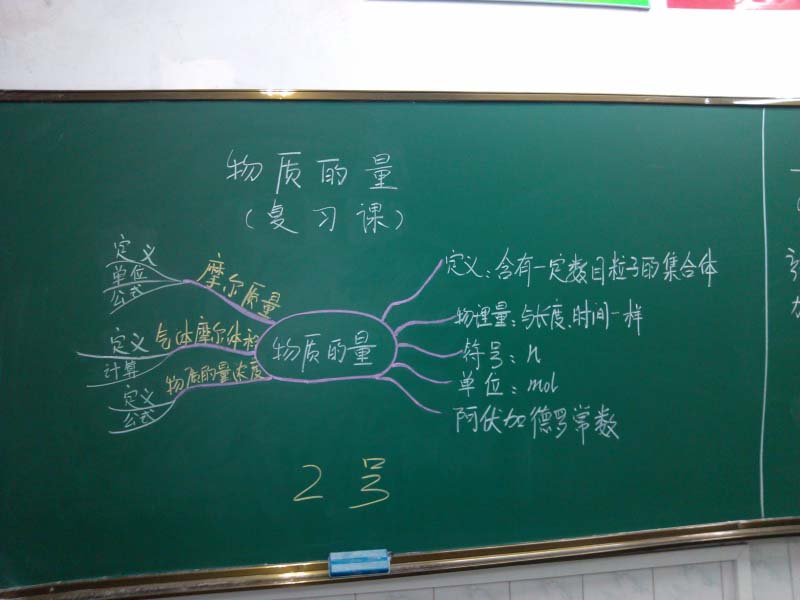 物质的量
(复习课)
定义
单位
公式
摩尔质量
定义
计算
气体摩尔体积
定义
公式
物质的量浓度
物质的量
定义:含有一定数目粒子的集合体
物理量:与长度、时间一样
符号:n
单位:mol
阿伏加德罗常数
2号